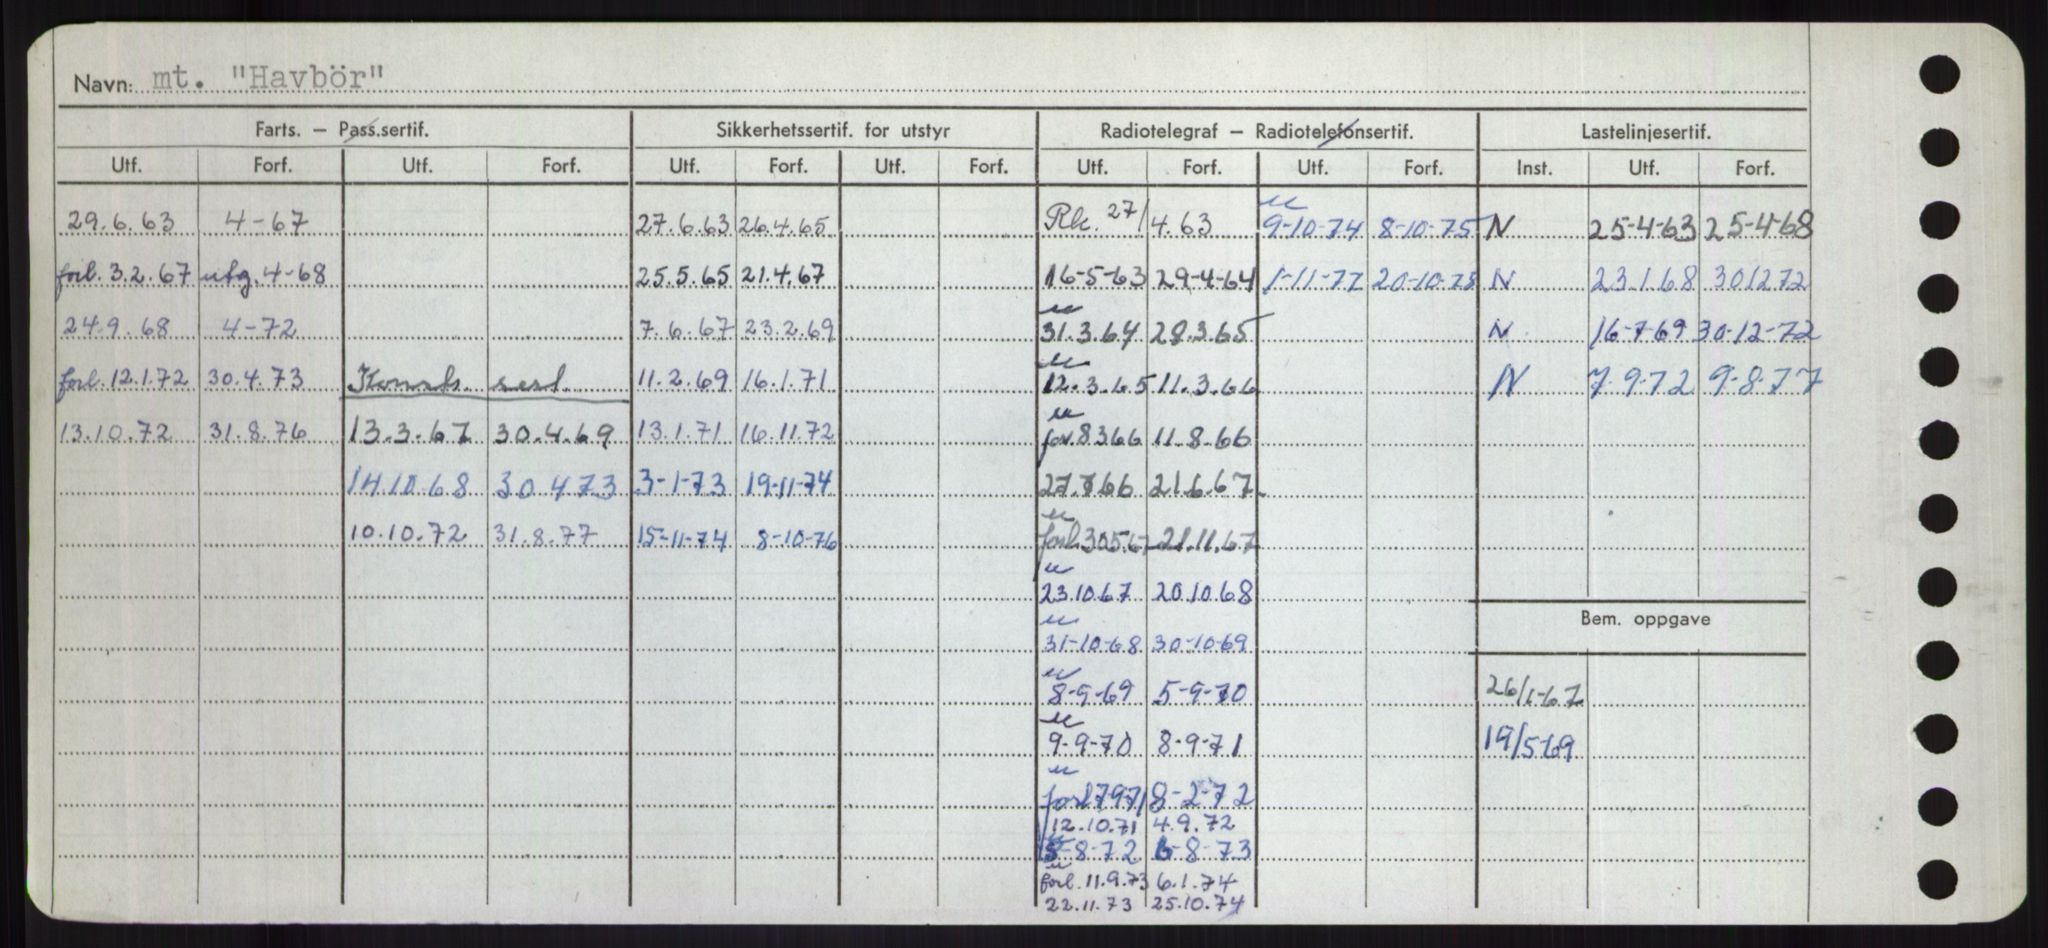 Navn: mt. "Havbör"
Farts. — Pass.sertif. Sikkerhetssertif. for utstyr Radiotelegraf — Radiotelefonsertif. Lastelinjesertif.
Utf. Forf. Utf. Forf. Utf. Forf. Utf. Forf. Utf. Forf. Utf. Forf. Inst. Utf. Forf.
29.6.63 4-67 27.6.63 26.4.65 Rk. 27/4.63 9-10-74 8-10-75 N 25-4-63 25-4-68
forl. 3.2.67 utg. 4-68 25.5.65 21.4.67 16-5-63 29-4-64 1-11-77 20-10-78 N 23.1.68 30.12.72
24.9.68 4-72 7.6.67 23.2.69 31.3.64 28.3.65 N 16-7-69 30-12-72
forl. 12.1.72 30.4.73 11.2.69 16.1.71 12.3.65 11.3.66 N 7-9-72 9-8-77
13.10.72 31.8.76 13.3.67 30.4.69 13.1.71 16.11.72 for. 8366 11.8.66
14.10.68 30.4.73 3-1-73 19-11-74 27.7.66 21.6.67
10.10.72 31.8.77 15-11-74 8-10-76 forl. 30.5.67 21.11.67
23.10.67 20.10.68
Bem. oppgave
31-10-68 30-10-69
8-9-69 5-9-70 26/1-67
9-9-70 8-9-71 19/5-69
forl 1797/ 8-2-72
12.10.71 4.9.72
8-72 6-8-73
forl. 11.9.73 6.1.74
22.11.73 25.10.74